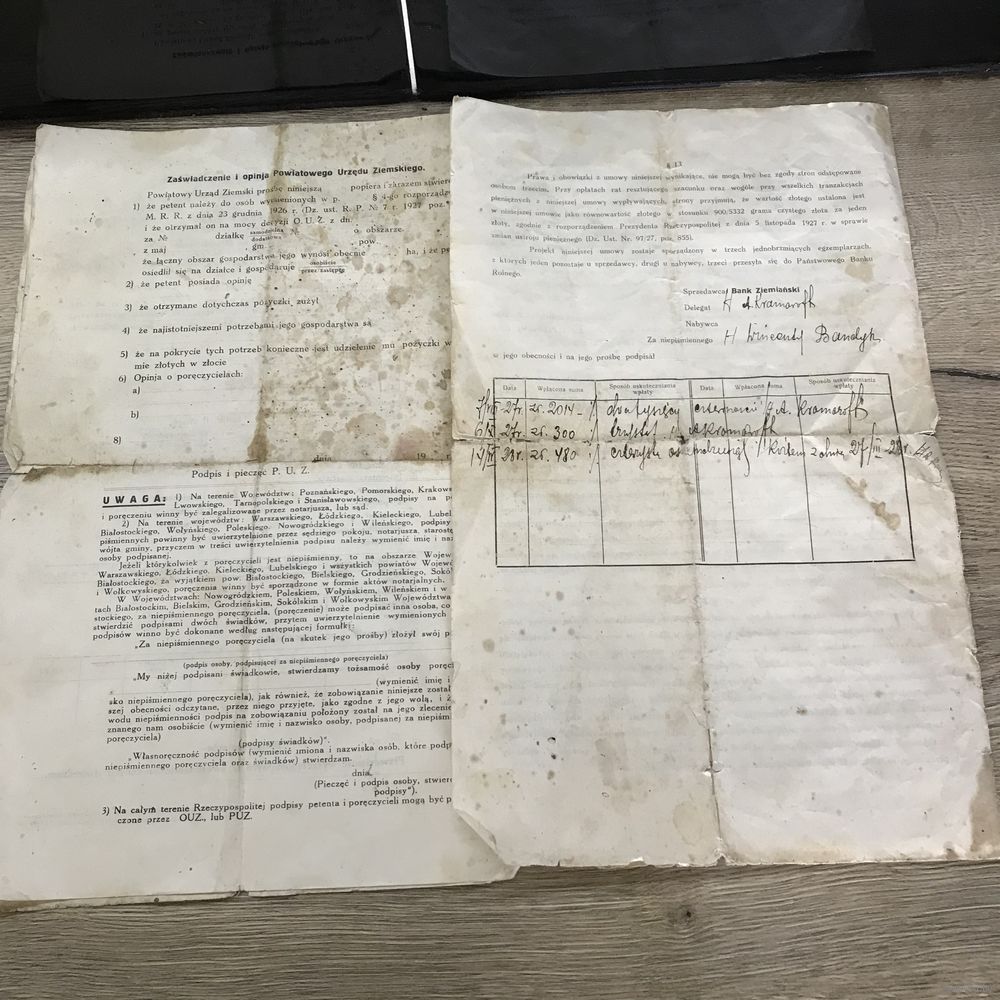 Zaświadczenie i opinja Powiatowego Urzędu Ziemskiego.
Powiatowy Urząd Ziemski prośbę niniejszą popiera i zarazem stwier
1) że petent należy do osób wymienionych w p. § 4-go rozporządz
M. R. R. z dnia 23 grudnia 1926 r. (Dz. ust. R. P. № 7 r. 1927 poz.
i że otrzymał on na mocy decyzji O. U. Z. z dn.
za № działkę samodzielną № o obszarze
dodatkową
z maj gm. pow.
że łączny obszar gospodarstwa jego wynosi obecnie ha, i że p
osiedlił się na działce i gospodaruje osobiście
przez zastępcę
2) że petent posiada opinję
3) że otrzymane dotychczas pożyczki zużył
4) że najistotniejszemi potrzebami jego gospodarstwa są
5) że na pokrycie tych potrzeb konieczne jest udzielenie mu pożyczki w
mie złotych w złocie
6) Opinja o poręczycielach:
a)
b)
8)
dnia 19 r.
Podpis i pieczęć P. U. Z.
UWAGA: 1) Na terenie Województw: Poznańskiego, Pomorskiego, Krakows
Lwowskiego, Tarnopolskiego i Stanisławowskiego, podpisy na p
i poręczeniu winny być zalegalizowane przez notarjusza, lub sąd.
2) Na terenie województw: Warszawskiego, Łódzkiego, Kieleckiego, Lubel
Białostockiego, Wołyńskiego, Poleskiego, Nowogródzkiego i Wileńskiego, podpisy
piśmiennych powinny być uwierzytelnione przez sędziego pokoju, notarjusza, starost
wójta gminy, przyczem w treści uwierzytelnienia podpisu należy wymienić imię i naz
osoby podpisanej.
Jeżeli którykolwiek z poręczycieli jest niepiśmienny, to na obszarze Wojew
Warszawskiego, Łódzkiego, Kieleckiego, Lubelskiego i wszystkich powiatów Wojew
Białostockiego, za wyjątkiem pow. Białostockiego, Bielskiego, Grodzieńskiego, Sokól
i Wołkowyskiego, poręczenia winny być sporządzone w formie aktów notarjalnych.
W Województwach: Nowogródzkiem, Poleskiem, Wołyńskiem, Wileńskiem i w
tach Białostockim, Bielskim, Grodzieńskim, Sokólskim i Wołkowyskim Województwa
stockiego, za niepiśmiennego poręczyciela, (poręczenie) może podpisać inna osoba, co
stwierdzić podpisami dwóch świadków, przytem uwierzytelnienie wymienionych
podpisów winno być dokonane według następującej formułki:
„Za niepiśmiennego poręczyciela (na skutek jego prośby) złożył swój p
(podpis osoby, podpisującej za niepiśmiennego poręczyciela)
„My niżej podpisani świadkowie, stwierdzamy tożsamość osoby poręc
(wymienić imię i
sko niepiśmiennego poręczyciela), jak również, że zobowiązanie niniejsze zostal
szej obecności odczytane, przez niego przyjęte, jako zgodne z jego wolą, i ż
wodu niepiśmienności podpis na zobowiązaniu położony został na jego zlecenie
znanego nam osobiście (wymienić imię i nazwisko osoby, podpisanej za niepiśm
poręczyciela)
(podpisy świadków)".
„Własnoręczność podpisów (wymienić imiona i nazwiska osób, które podp
niepiśmiennego poręczyciela oraz świadków) stwierdzam.
dnia
(Pieczęć i podpis osoby, stwierd
podpisy").
3) Na całym terenie Rzeczypospolitej podpisy petenta i poręczycieli mogą być p
czone przez OUZ., lub PUZ.
§ 13
Prawa i obowiązki z umowy niniejszej wynikające, nie mogą być bez zgody stron odstępowane
osobom trzecim. Przy opłatach rat resztującego szacunku oraz wogóle przy wszelkich tranzakcjach
pieniężnych z niniejszej umowy wypływających, strony przyjmują, że wartość złotego ustalona jest
w niniejszej umowie jako równowartość złotego w stosunku 900/5332 grama czystego złota za jeden
złoty, zgodnie z rozporządzeniem Prezydenta Rzeczypospolitej z dnia 5 listopada 1927 r. w sprawie
zmian ustroju pieniężnego (Dz. Ust. Nr. 97/27, poz. 855).
Projekt niniejszej umowy zostaje sporządzony w trzech jednobrzmiących egzemplarzach,
z których jeden pozostaje u sprzedawcy, drugi u nabywcy, trzeci przesyła się do Państwowego Banku
Rolnego.
Sprzedawca Bank Ziemiański
Delegat A Kramaroff
Nabywca
Za niepiśmiennego Wincenty Bandyk
w jego obecności i na jego prośbę podpisał
Data Wpłacona suma Sposób uskutecznienia wpłaty Data Wpłacona suma Sposób uskutecznienia wpłaty
27r. zł. 2014 dwa tysiące czternaście A. Kramaroff
27r. zł. 300 trzysta AKramaroff
28r. zł. 480 czterysta